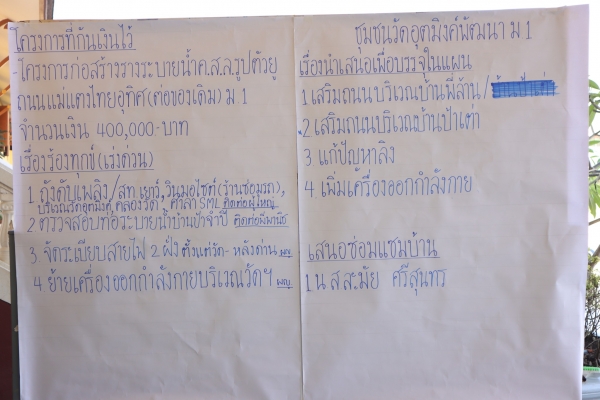 โครงการที่กันเงินไว้
-โครงการก่อสร้างรางระบายน้ำค.ส.ล.รูปตัวยู
ถนนแม่แตงไทยอุทิศ(ต่อของเดิม) ม 1
จำนวนเงิน 400,000.-บาท
เรื่องร้องทุกข์(เร่งด่วน)
1 ถังดับเพลิง/สท เยาว์, วินมอไซต์ (ร้านซ่อมรถ),
บริเวณวัดอุตมิงค์, คลองวัด, ศาลา SML ติดต่อผู้ใหญ่
2 ตรวจสอบท่อระบายน้ำบ้านป้าจำปี ติดต่อพี่พานิช
3. จัดระเบียบสายไฟ 2 ฝั่ง ตั้งแต่วัด - หลังด่าน ผญ
4. ย้ายเครื่องออกกำลังกายบริเวณวัดฯ ผญ.
ชุมชนวัดอุตมิงค์พัฒนา ม 1
เรื่องนำเสนอเพื่อบรรจุในแผน
1 เสริมถนนบริเวณบ้านพี่ล้าน/
2 เสริมถนนบริเวณบ้านป้าเต่า
3 แก้ปัญหาลิง
4. เพิ่มเครื่องออกกำลังกาย
เสนอซ่อมแซมบ้าน
1 น ส สะมัย ศรีสุนทร